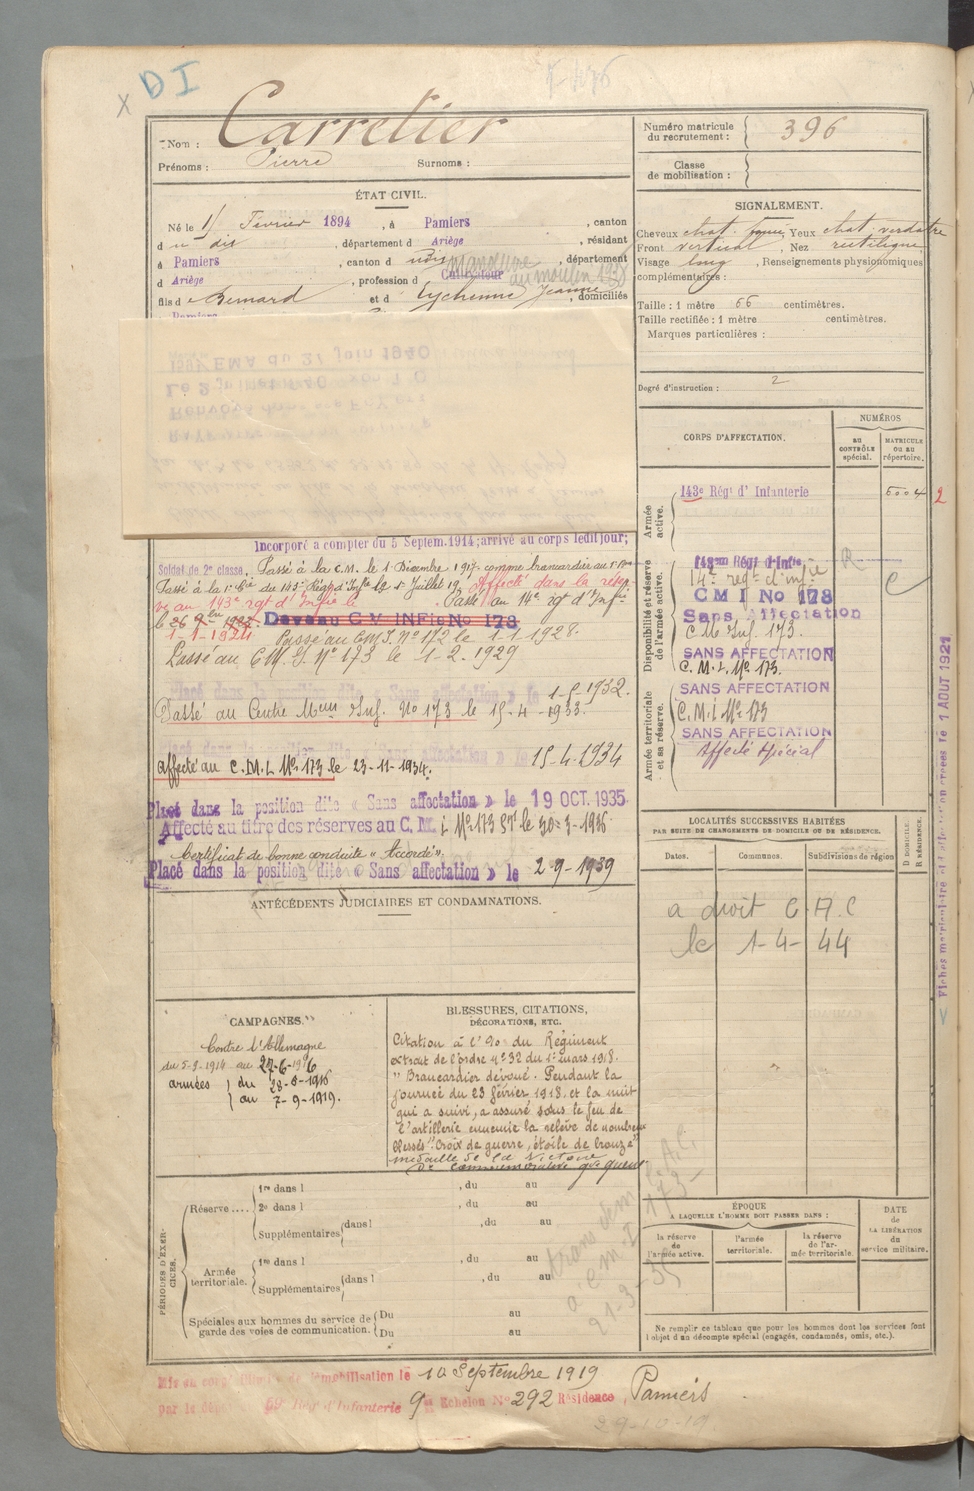 DI
Nom : Carretier
Prénoms : Pierre Surnoms :
ÉTAT CIVIL.
Né le Février 1894, à Pamiers, canton
d u dit, département d Ariège, résidant
à Pamiers, canton d, département
d Ariège, profession d Cultivateur au moulin
fils d e Bernard et d Eychenne Jeanne, domiciliés
Incorporé à compter du 5 Septem. 1914; arrivé au corps ledit jour;
Soldat de 2e classe, Passé à la C.M. le 1 Décembre 1917 comme brancardier
Passé à la 1e Cie du 143e Régt d'Infie le 1er Juillet 19 Affecté dans la réser-
ve au 143e rgt d'Infie le . Passé au 14e rgt d'Infie
le
1-1-1924 Devenu C M INFie No 178
Passé au CMI No 172 le 1-1-1928.
Passé au C.M.I No 173 le 1-2-1929
Placé dans la position dite « Sans affectation » le 1-5-1932.
Passé au Centre Meur Inf. No 173 le 15-4-1933.
Placé dans la position dite « Sans affectation » le 15-4-1934
affecté au C.M.I. No 173 le 23-11-1934.
Placé dans la position dite « Sans affectation » le 19 OCT. 1935
Affecté au titre des réserves au C.M. I No 173 le 30-3-1936
Certificat de bonne conduite "Accordé".
Placé dans la position dite « Sans affectation » le 2-9-1939
ANTÉCÉDENTS JUDICIAIRES ET CONDAMNATIONS.
CAMPAGNES.
Contre l'Allemagne
du 5-9-1914 au 27-6-1916
armées } du 28-8-1916
au 7-9-1919.
BLESSURES, CITATIONS,
DÉCORATIONS, ETC.
Citation à l'o. du Régiment
extrait de l'ordre no 32 du 1er mars 1918.
" Brancardier dévoué. Pendant la
journée du 23 février 1918 et la nuit
qui a suivi, a assuré sous le feu de
l'artillerie ennemie la relève de nombreux
blessés". Croix de guerre, étoile de bronze
médaille de la Victoire
De commémorative gde guerre
PÉRIODES D'EXERCICES.
Réserve....
1re dans l , du au
2e dans l , du au
Supplémentaires dans l , du au
Armée territoriale.
1re dans l , du au
Supplémentaires dans l , du au
Spéciales aux hommes du service de garde des voies de communication.
Du au
Du au
démobilisation le 10 Septembre 1919
Rég d'Infanterie 9e Echelon No 292 Résidence, Pamiers
Numéro matricule du recrutement : 396
Classe de mobilisation :
SIGNALEMENT.
Cheveux chat. Yeux chat. verdâtre
Front vertical, Nez rectiligne
Visage long, Renseignements physionomiques
complémentaires :
Taille : 1 mètre 66 centimètres.
Taille rectifiée : 1 mètre centimètres.
Marques particulières :
Degré d'instruction : 2
CORPS D'AFFECTATION.
NUMÉROS
AU CONTRÔLE spécial.
MATRICULE OU AU répertoire.
Armée active.
143e Régt d'Infanterie 5004 2
Disponibilité et réserve de l'armée active.
143eme Régt d'Infie
14e regt d'infie
C M I No 178
Sans Affectation
C M Inf. 173.
SANS AFFECTATION
C.M.I. No 173.
Armée territoriale et sa réserve.
SANS AFFECTATION
C.M.I No 173
SANS AFFECTATION
Affecté Spécial
LOCALITÉS SUCCESSIVES HABITÉES
PAR SUITE DE CHANGEMENTS DE DOMICILE OU DE RÉSIDENCE.
Dates. Communes. Subdivisions de région
D DOMICILE. R RÉSIDENCE.
a droit C.A.C
le 1-4-44
ÉPOQUE
A LAQUELLE L'HOMME DOIT PASSER DANS :
la réserve de l'armée active.
l'armée territoriale.
la réserve de l'armée territoriale.
DATE de LA LIBÉRATION du service militaire.
Ne remplir ce tableau que pour les hommes dont les services font
l'objet d'un décompte spécial (engagés, condamnés, omis, etc.).
Fiches matriculaire et d'affectation créées le 1 AOUT 1921